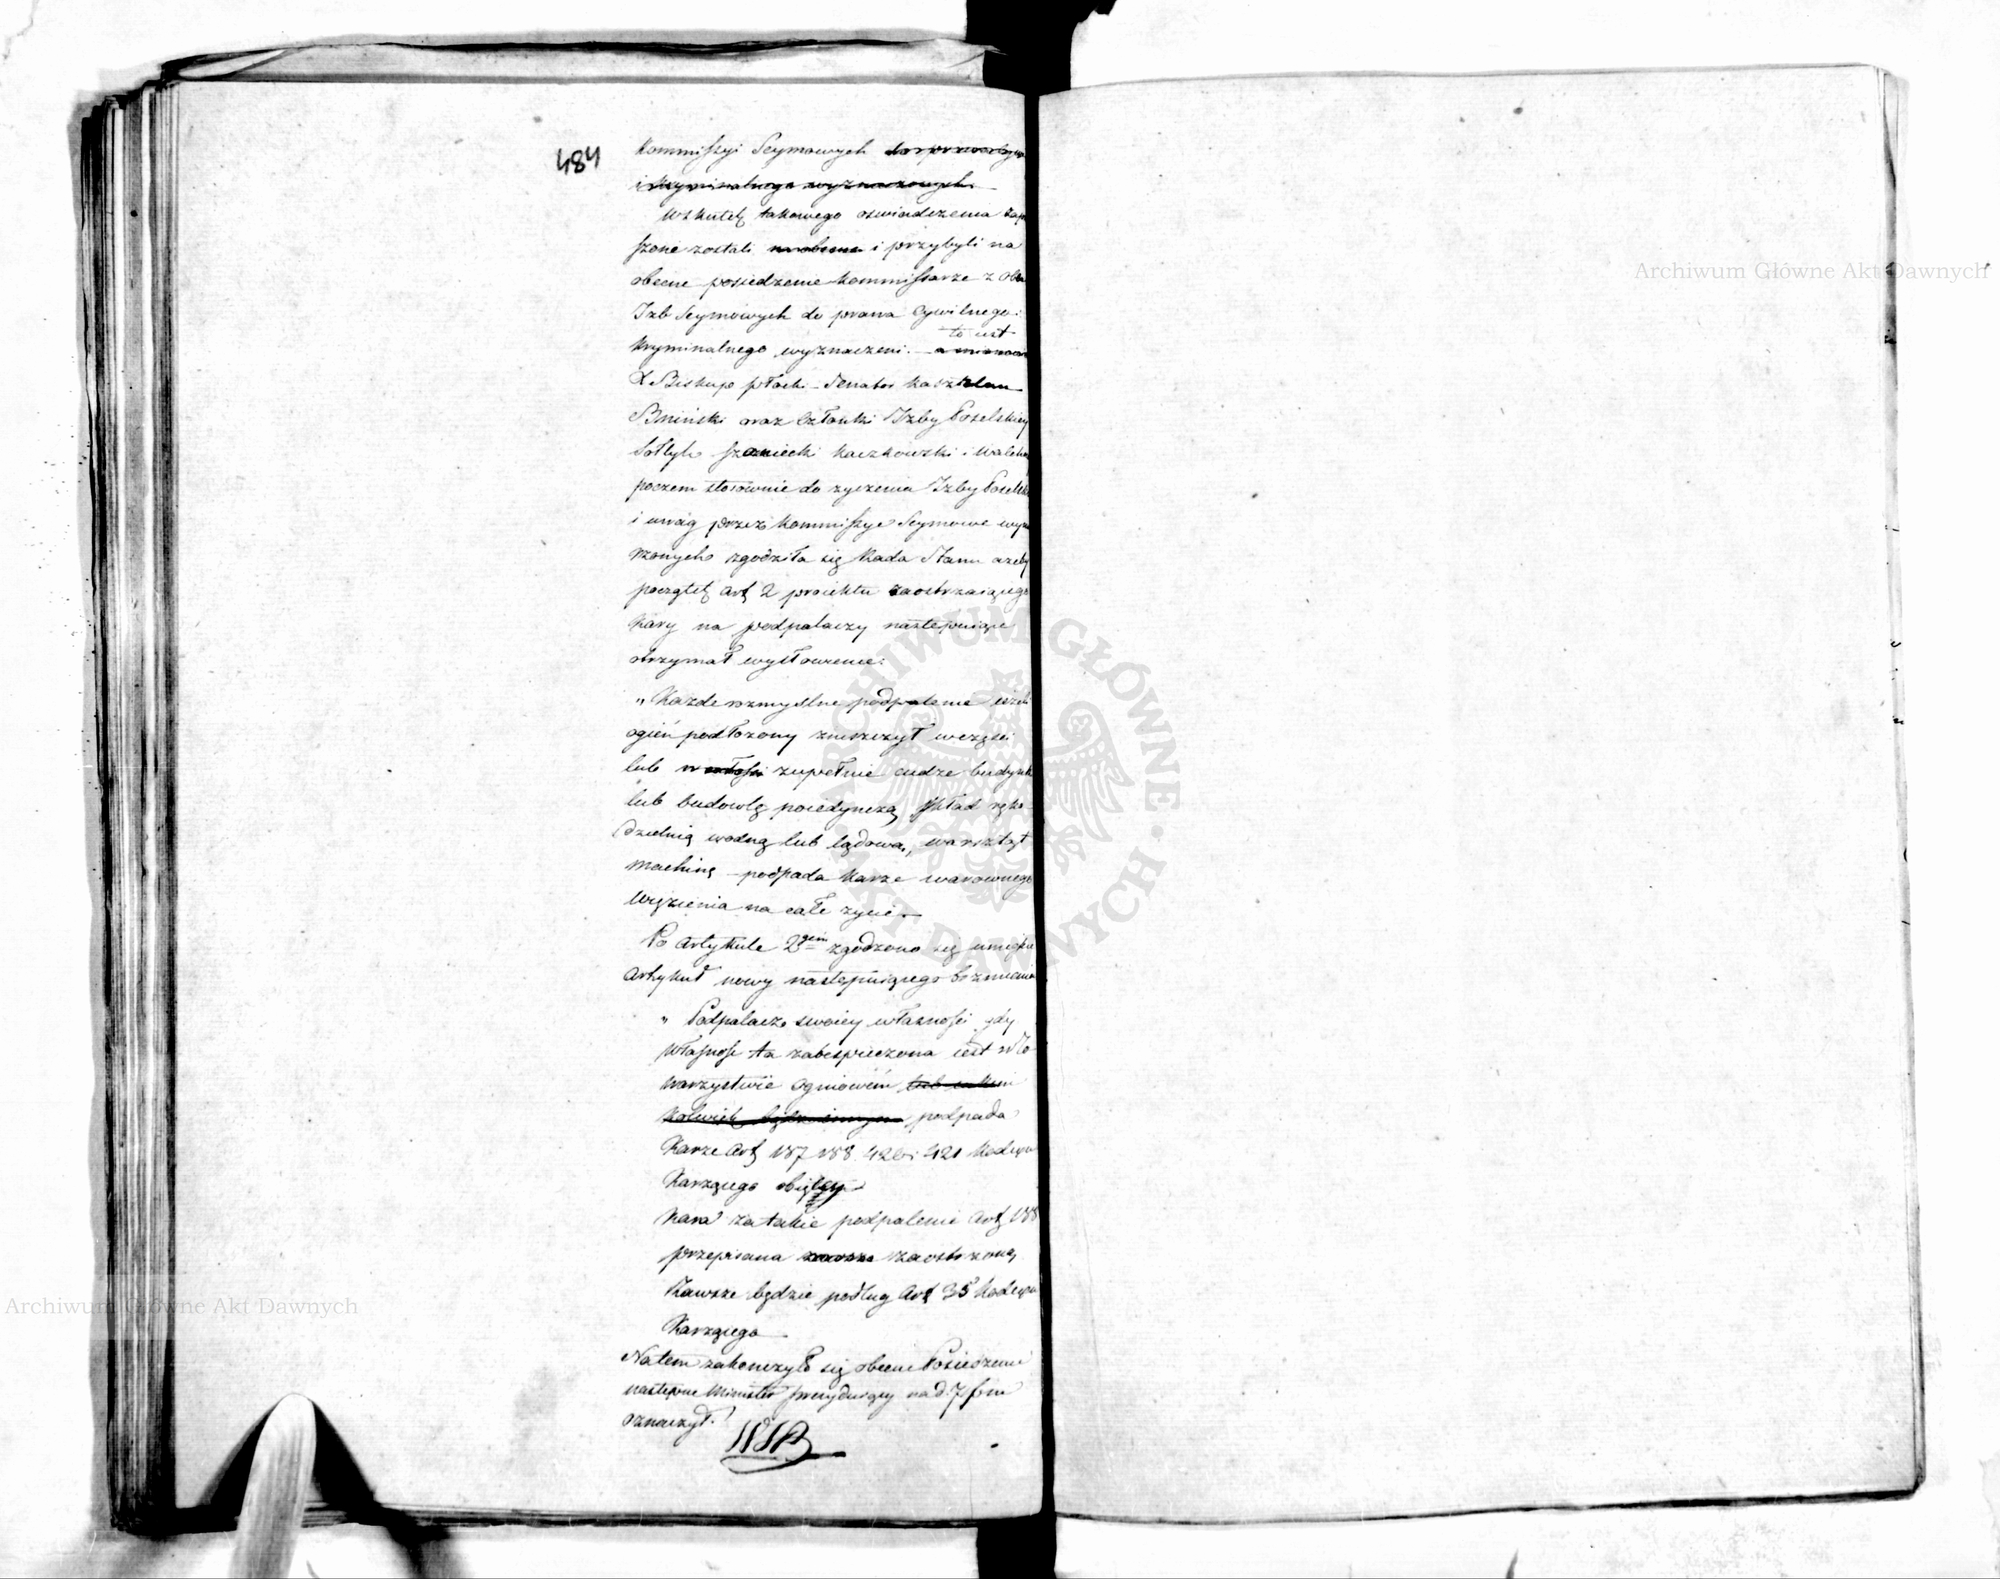 484
Kommissyi Seymowych do prawa Cywil
i kryminalnego wyznaczonych.
Wskutek takowego oswiadczenia zapro
szone zostali na obecne i przybyli na
obecne posiedzenie Kommissarze z Obu
Izb Seymowych do prawa Cywilnego i
to iest
Kryminalnego wyznaczeni. — a mianowi
X Biskup płocki — Senator Kasztelan
Bniński oraz Członki Izby Poselskiey
Sołtyk Szaniecki Kaczkowski i Walchno
poczem stosownie do zyczenia Izby Poselski
i uwag przez Kommissye Seymowe wyra
rzonych zgodziła się Rada Stanu azeby
początek Art 2 proiektu zaostrzaiącego
Kary na podpalaczy następuiące
otrzymał wysłowienie:
„ Kazde rozmyslne podpalenie iezeli
ogień podłozony zniszczył wczęsci
lub w całosci zupełnie cudze budynki
lub budowlę poiedynczą, skład ręko-
dzielnią wodną lub lądową, warsztat
machinę — podpada Karze warownego
Więzienia na całe zycie. —
Po Artykule 2gim zgodzono się umieścić
Artykuł nowy następuiącego brzmienia
„ Podpalacz swoiey własnosci gdy
Własnosc ta zabespieczona iest w To-
warzystwie Ogniowem lub iakim
kolwiek bądź innym podpada
Karze Art 187 188. 420 i 421 Kodexu
Karzącego obiętey
Kara za takie podpalenie Art 188
przepisana zawsze zaostrzoną
Zawsze będzie podług Art 35 Kodexu
Karzącego —
Natem zakonczyło się obecne Posiedzenie
następne Minister prezyduiący na d. 7 b. m
oznaczył.
Archiwum Główne Akt Dawnych
Archiwum Główne Akt Dawnych
ARCHIWUM GŁÓWNE AKT DAWNYCH